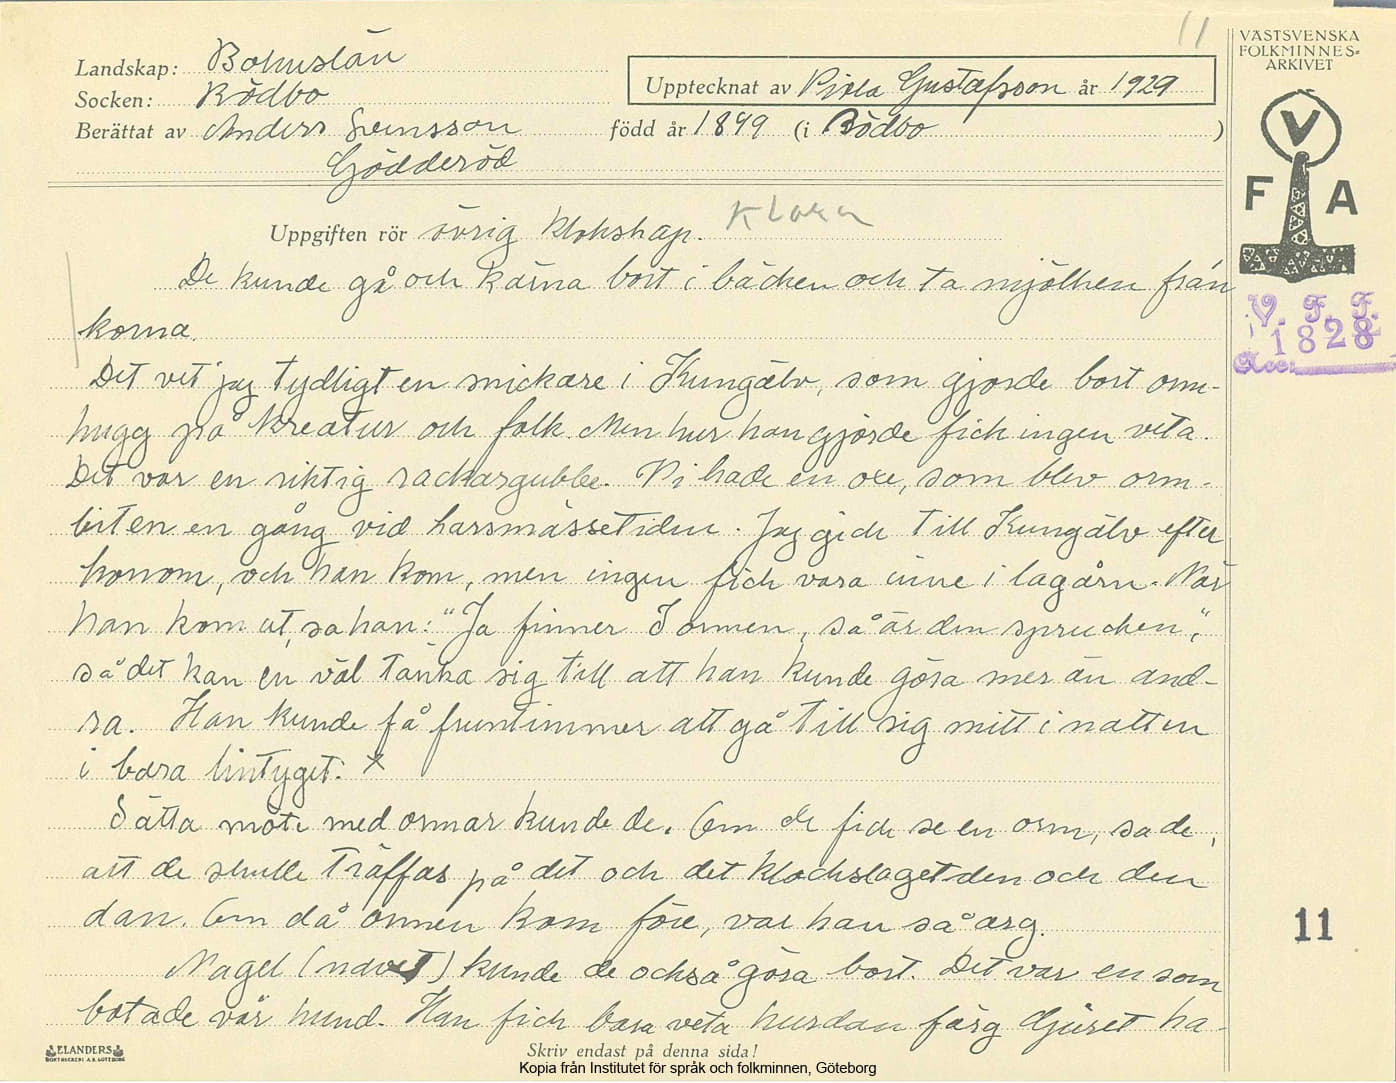 11
Landskap: Bohuslän
Socken: Rödbo
Upptecknat av Pirla Gustafsson år 1929
Berättat av Anders Svensson född år 1899 (i Rödbo )
Gödderöd
VÄSTSVENSKA
FOLKMINNES-
ARKIVET
V
F A
V. F. F.
1828
Acc.
Uppgiften rör övrig klokskap. Klara
De kunde gå och kärna bort i bäcken och ta mjölken från
korna.
Det vet jag tydligt en snickare i Kungälv, som gjorde bort orm-
hugg på kreatur och folk. Men hur han gjorde fick ingen veta.
Det var en riktig rackargubbe. Vi hade en oxe, som blev orm-
biten en gång vid larsmässetiden. Jag gick till Kungälv efter
honom, och han kom, men ingen fick vara inne i lagårn. När
han kom ut, sa han: "Ja finner I ormen, så är den sprucken",
så det kan en väl tänka sig till att han kunde göra mer än and-
ra. Han kunde få fruntimmer att gå till sig mitt i natten
i bara lintyget. x
Sätta möte med ormar kunde de. Om de fick se en orm, sa de,
att de skulle träffas på det och det klockslaget den och den
dan. Om då ormen kom före, var han så arg.
Nagel (navet) kunde de också göra bort. Det var en som
botade vår hund. Han fick bara veta hurdan färg djuret ha-
11
ELANDERS
BOKTRYCKERI A.B. GÖTEBORG
Skriv endast på denna sida!
Kopia från Institutet för språk och folkminnen, Göteborg